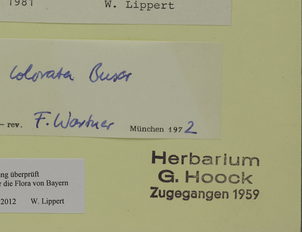 1981 W. Lippert
colorata Buser
– rev. F. Wartner München 1972
ng überprüft
r die Flora von Bayern
2012 W. Lippert
Herbarium
G. Hoock
Zugegangen 1959